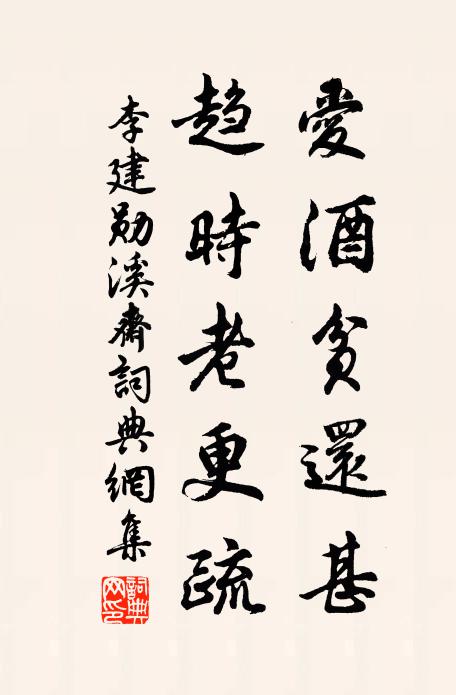 愛酒貧還甚
趨時老更疏
李建勛溪齋詞典網集
詞典网印